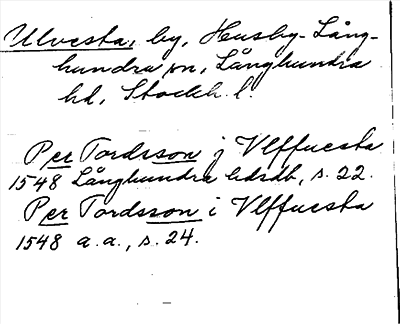 Ulvesta, by, Husby-Lång-
hundra sn, Långhundra
hd, Stockh. l.
Per Tordsson j Vlffuesta
1548 Långhundra hdsdb, s. 22.
Per Tordsson i Vlffuesta
1548 a.a., s. 24.